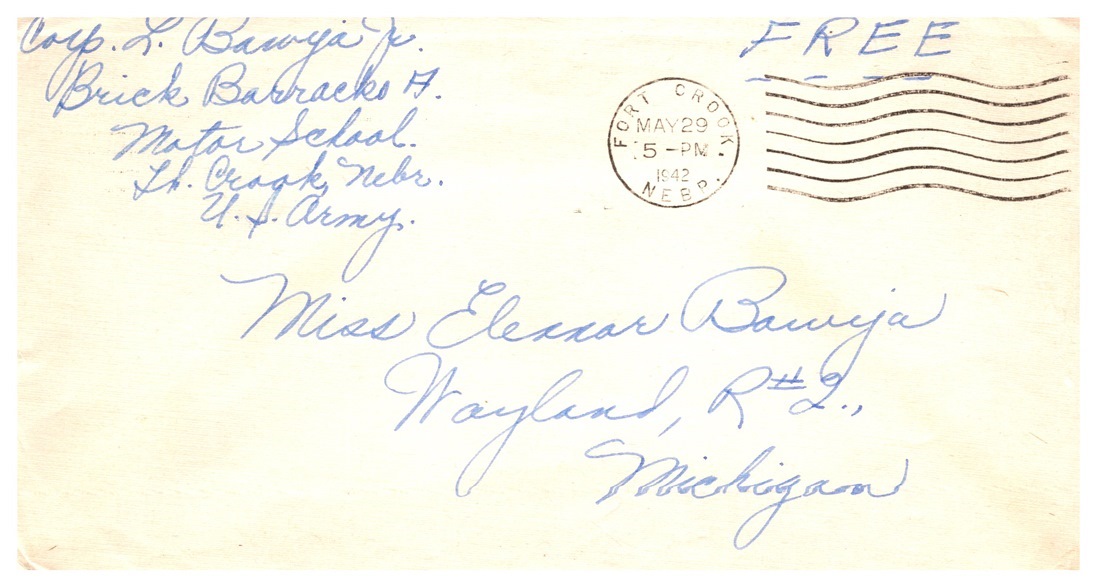 Corp. L. Bawyja Jr.
Brick Barracks A.
Motor School.
Ft. Crook, Nebr.
U. S. Army.
FREE
FORT CROOK
MAY 29
5 - PM
1942
NEBR.
Miss Eleanor Bawyja
Wayland, R#2.,
Michigan